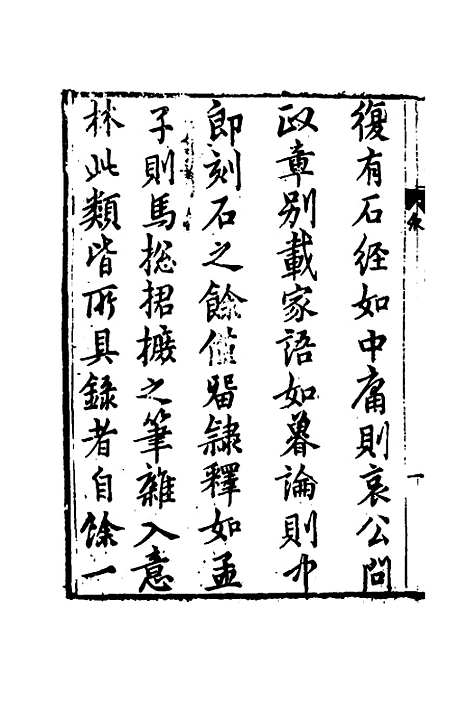 復有石經如中庸則哀公問
政章别載家語如魯論則中
郎刻石之餘僅畱隸釋如孟
子則馬總捃摭之筆雜入意
林此類皆所具録者自餘一
一